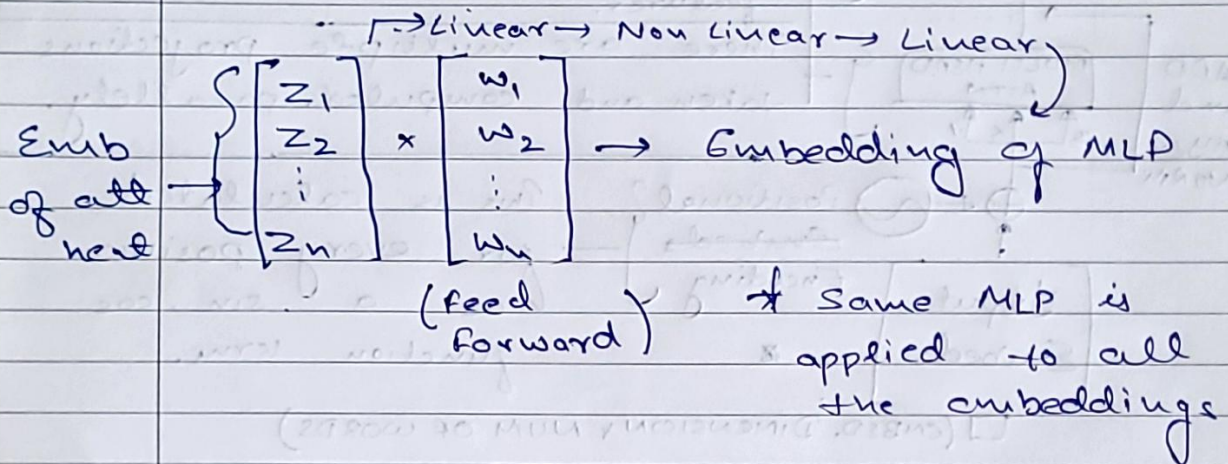 Linear → Non Linear → Linear
Emb of att head → [z1 z2 ⋮ zn] * [w1 w2 ⋮ wn] → Embedding of MLP
(feed forward)
* Same MLP is
applied to all
the embeddings